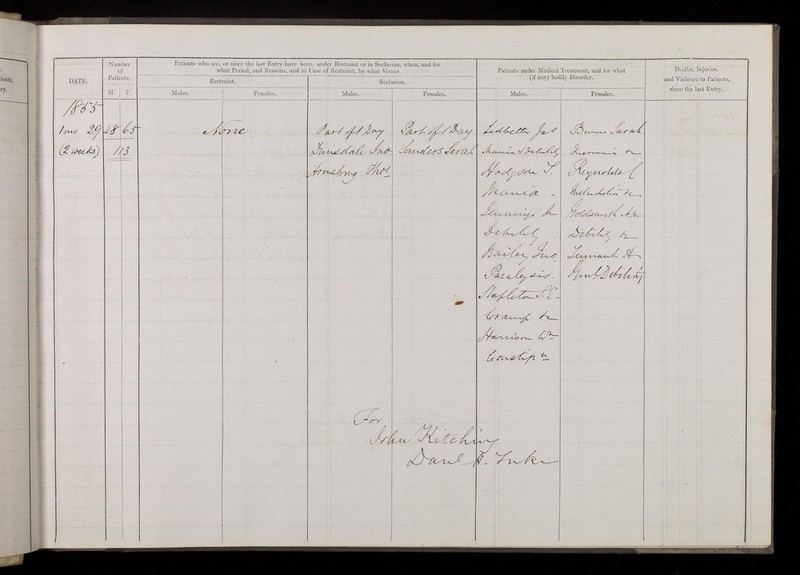 DATE.
Number of Patients.
M. F.
Patients who are, or since the last Entry have been, under Restraint or in Seclusion, when, and for
what Period, and Reasons, and in Case of Restraint, by what Means.
Restraint.
Males. Females.
Seclusion.
Males. Females.
Patients under Medical Treatment, and for what
(if any) bodily Disorder.
Males. Females.
Deaths, Injuries,
and Violence to Patients,
since the last Entry.
1855
1mo 29 48 65 None Part of 1 Day Part of 1 Day Lidbetter Jas Sarah
(2 weeks) 113 Jno Sanders Sarah Mania & Debility
Armstrong Thos Hodgson T. Reynolds C
Mania - Melancholia &c
Jennings Goldsmith
Debility Debility &c
Bailey Jno
Paralysis. Genl Debility
Stapleton
Cramp &c
Harrison Wm
Constipn
For
John Kitching
Danl H. Tuke